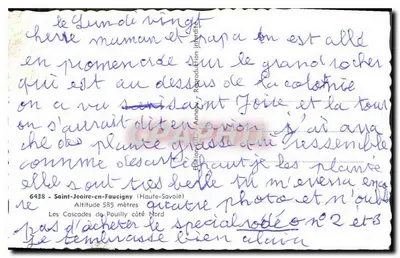 le Lundi vingt
chere muman et papa on est allé
en promenade sur le grand rocher
qui est au desus de la colonie
on a vu saint Joire et la tour
on s'aurait dit en avion j'ai arra
ché des plante grasse qui ressemble
comme desart, chaut je les planté
elle sont tres belle tu m'enverra enco
6438 - Saint-Jeoire-en-Faucigny (Haute-Savoie)
re quatre photo et n'oubli
Altitude 585 mètres
Les Cascades du Pouilly côté Nord
pas d'acheter le special rodéo n°2 et 3
je tembrasse bien alain